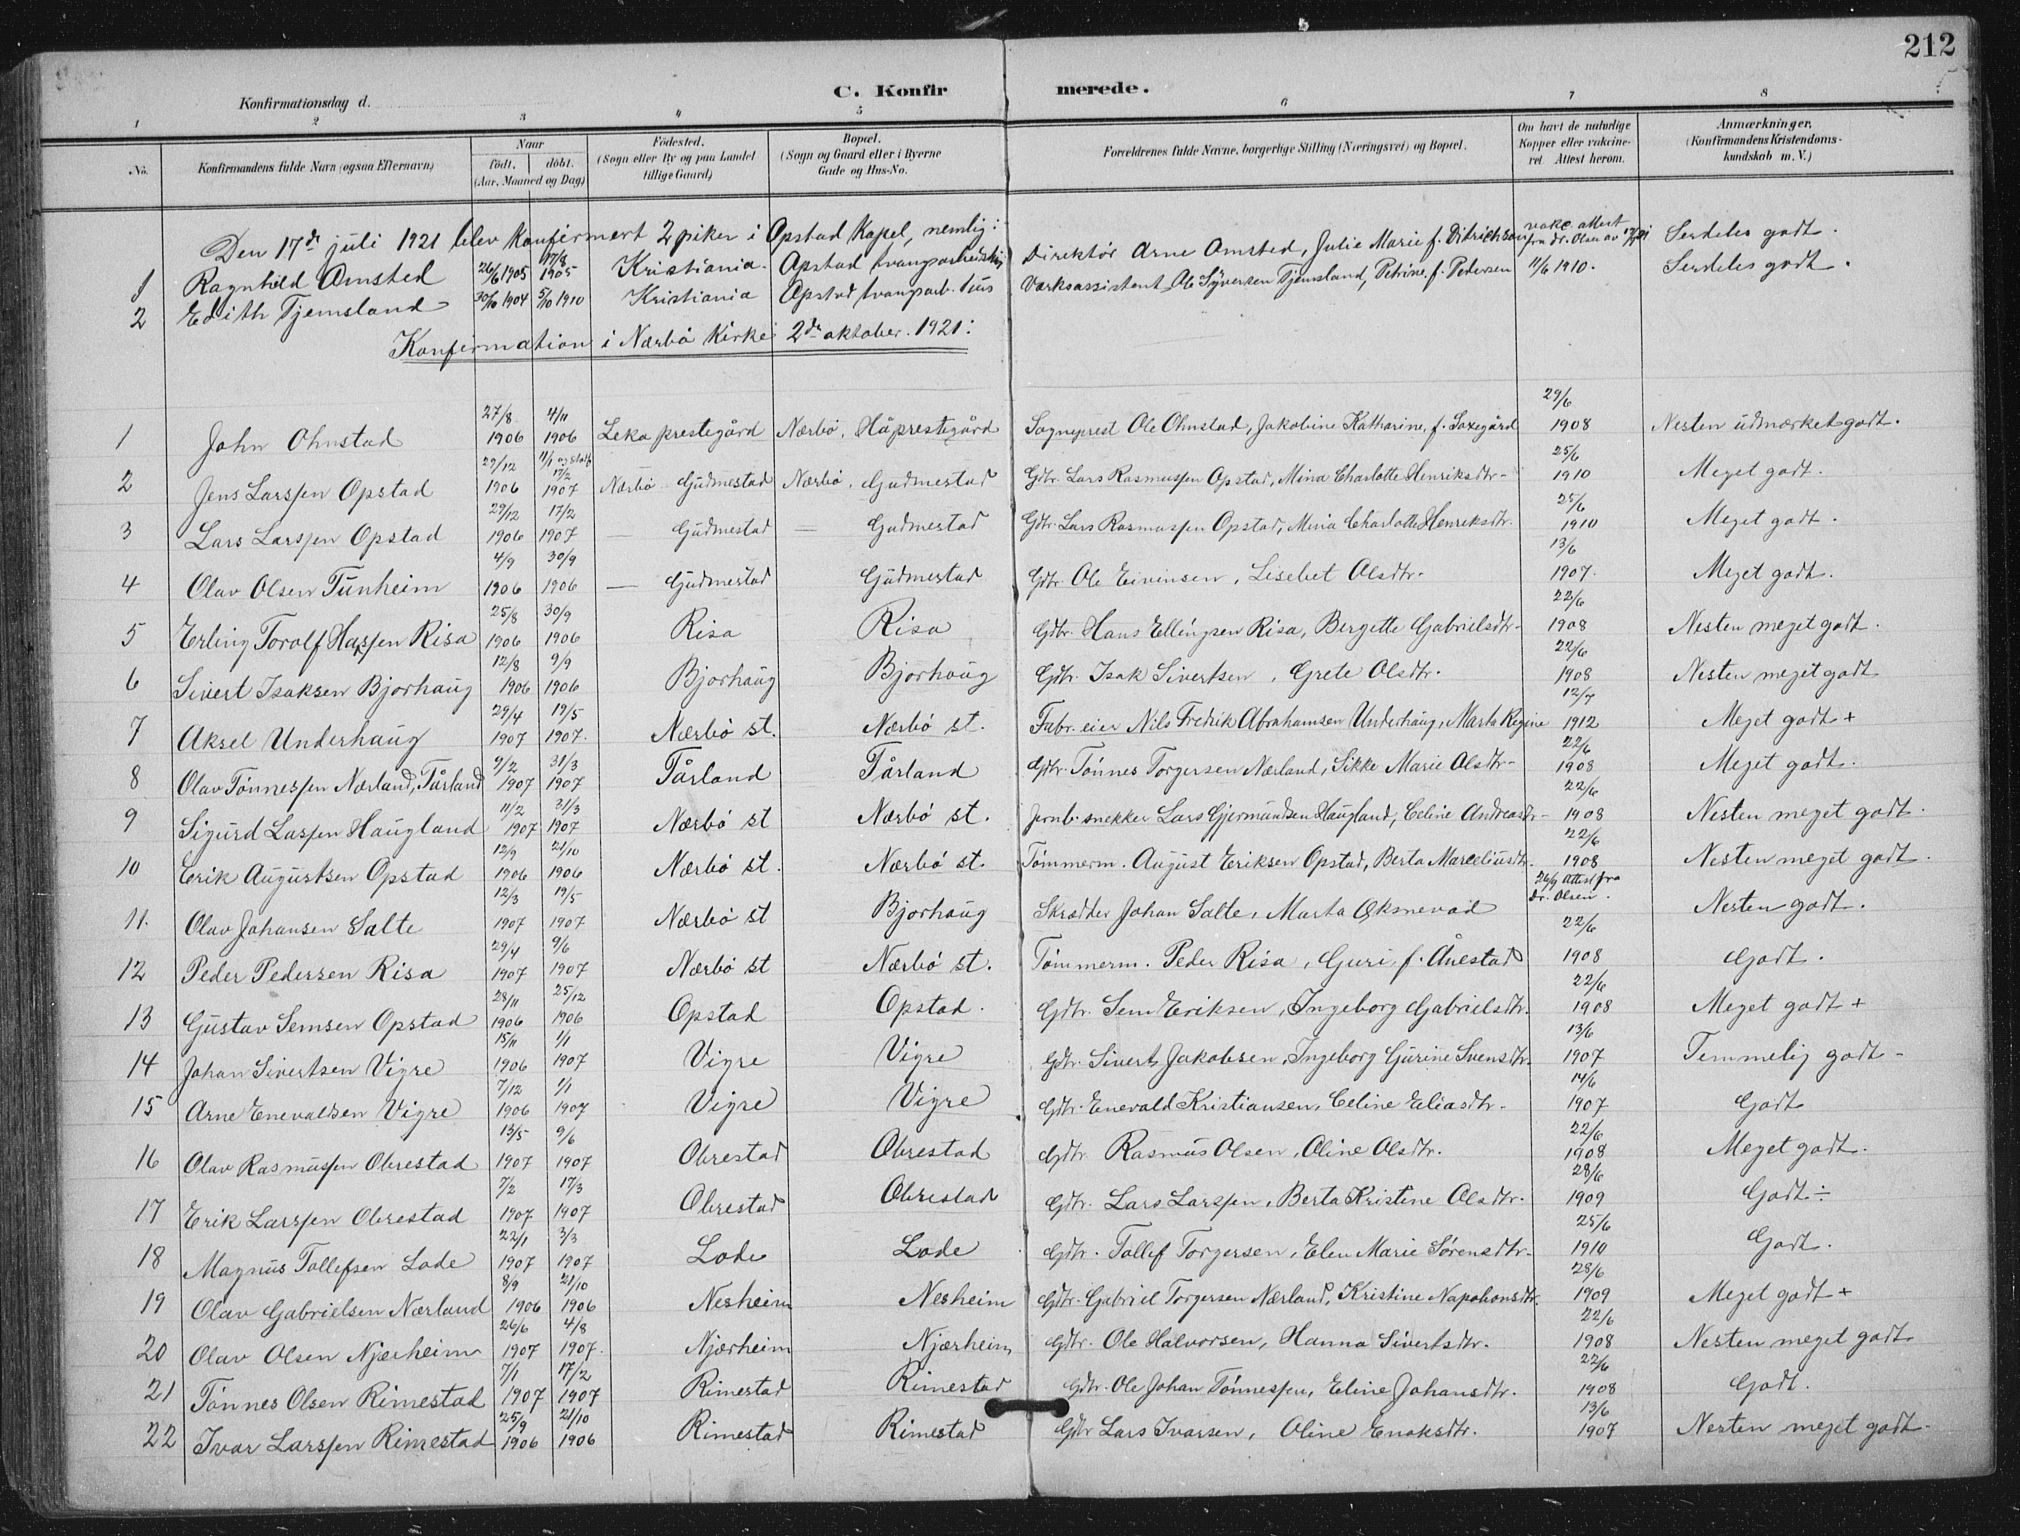 212
Konfirmationsdag d.
C. Konfirmerede.
1 2 3 4 5 6 7 8
No. Konfirmandens fulde Navn (ogsaa Efternavn) Naar födt. döbt. (Aar, Maaned og Dag) Födested. (Sogn eller By og paa Landet tillige Gaard) Bopæl. (Sogn og Gaard eller i Byerne Gade og Hus-No. Forældrenes fulde Navne, borgerlige Stilling (Næringsvei) og Bopæl. Om havt de naturlige Kopper eller vakcineret Attest herom. Anmærkninger. (Konfirmandens Kristendomskundskab m. V.)
Den 17de juli 1921 blev konfirmert 2 piker i Opstad Kapel, nemlig:
1 Ragnhild Omsted 26/6 1905 17/8 1905 Kristiania. Opstad tvangsarbeidshus Direktör Arne Omsted, Julie Marie f. Ditrichson vakc. attest fra dr. Olsen av Særdeles godt.
2 Edith Tjemsland 30/10 1904 5/10 1910 Kristiania Opstad tvangsarb. hus Værksassistent Ole Syversen Tjemsland, Petrine f. Pedersen 11/6 1910. Særdeles godt.
Konfirmation i Nærbö Kirke 2de oktober 1921:
1 John Ohnstad 27/8 1906 4/11 1906 Leka prestegård Nærbö, Håprestegård Sogneprest Ole Ohnstad, Jakobine Katharine, f. Saxegård 29/6 1908 Nesten udmærket godt.
2 Jens Larssen Opstad 29/12 1906 11/1 og stadf 17/2 1907 Nærbö Gudmestad Nærbö, Gudmestad Gdbr. Lars Rasmussen Opstad, Mina Charlotte Henriksdtr. 25/6 1910 Meget godt.
3 Lars Larssen Opstad 29/12 1906 17/2 1907 — Gudmestad — Gudmestad Gdbr. Lars Rasmussen Opstad, Mina Charlotte Henriksdtr. 25/6 1910 Meget godt.
4 Olav Olsen Tunheim 4/9 1906 30/9 1906 — Gudmestad Gudmestad Gdbr. Ole Eivinsen, Lisebet Olsdtr. 13/6 1907. Meget godt.
5 Erling Torolf Hanssen Risa 25/8 1906 30/9 1906 Risa Risa Gdbr. Hans Ellingsen Risa, Bergette Gabrielsdtr. 22/6 1908 Nesten meget godt.
6 Sivert Isaksen Bjorhaug 12/8 1906 9/9 1906 Bjorhaug Bjorhaug Gdbr. Isak Sivertsen, Grete Olsdtr. 22/6 1908 Nesten meget godt
7 Aksel Underhaug 29/4 1907 19/5 1907. Nærbö st. Nærbö st. Fabr. eier Nils Fredrik Abrahamsen Underhaug, Marta Regine 12/7 1912 Meget godt +
8 Olav Tönnessen Nærland, Tårland 9/2 1907 31/3 1907 Tårland Tårland Gdbr. Tönnes Torgersen Nærland, Sikke Marie Olsdtr. 22/6 1908 Meget godt.
9 Sigurd Larssen Haugland 11/2 1907 31/3 1907 Nærbö st Nærbö st. Jernb. snekker Lars Gjermundsen Haugland, Celine Andreasdtr. 22/6 1908 Nesten meget godt.
10 Erik Augustsen Opstad 12/9 1906 21/10 1906 Nærbö st. Nærbö st. Tömmerm. August Eriksen Opstad, Berta Marceliusdtr. 22/6 1908 Nesten meget godt.
11. Olav Johansen Salte 12/3 1907 19/5 1907 Nærbö st Bjorhaug Skrædder Johan Salte, Marta Oksnevad 26/9 Attest fra dr. Olsen. Nesten godt.
12 Peder Pedersen Risa 29/4 1907 9/6 1907 Nærbö st Nærbö st. Tömmerm. Peder Risa, Guri f. Ånestad 22/6 1908 Godt.
13 Gustav Semsen Opstad 28/11 1906 25/12 1906 Opstad Opstad. Gdbr. Sem Eriksen, Ingeborg Gabrielsdtr. 22/6 1908 Meget godt +
14 Johan Sivertsen Vigre 15/11 1906 1/1 1907 Vigre Vigre Gdbr. Sivert Jakobsen, Ingeborg Gurine Svensdtr. 13/6 1907 Temmelig godt -
15 Arne Enevaldsen Vigre 7/12 1906 1/1 1907 Vigre Vigre Gdbr. Enevald Kristiansen, Celine Eliasdtr. 14/6 1907 Godt
16 Olav Rasmussen Obrestad 13/5 1907 9/6 1907 Obrestad Obrestad Gdbr. Rasmus Olsen, Oline Olsdtr. 22/6 1908 Meget godt.
17 Erik Larssen Obrestad 7/2 1907 17/3 1907 Obrestad Obrestad Gdbr. Lars Larssen, Berta Kristine Olsdtr. 28/6 1909 Godt ÷
18 Magnus Tollefsen Lode 22/1 1907 3/3 1907 Lode Lode Gdbr. Tollef Torgersen, Elen Marie Sörensdtr. 25/6 1910 Godt.
19 Olav Gabrielsen Nærland 8/9 1906 21/10 1906 Nesheim Nesheim Gdbr. Gabriel Torgersen Nærland, Kristine Napoleonsdtr. 28/6 1909 Meget godt +
20 Olav Olsen Njærheim 26/6 1907 4/8 1907. Njærheim Njærheim Gdbr. Ole Halvorsen, Hanna Sivertsdtr. 22/6 1908 Nesten meget godt
21 Tönnes Olsen Rimestad 7/1 1907 17/2 1907 Rimestad Rimestad Gdbr. Ole Johan Tönnessen, Eline Johansdtr. 22/6 1908 Godt.
22 Ivar Larssen Rimestad 25/9 1906 21/10 1906 Rimestad Rimestad Gdbr Lars Ivarsen, Oline Enoksdtr. 13/6 1907 Nesten meget godt.